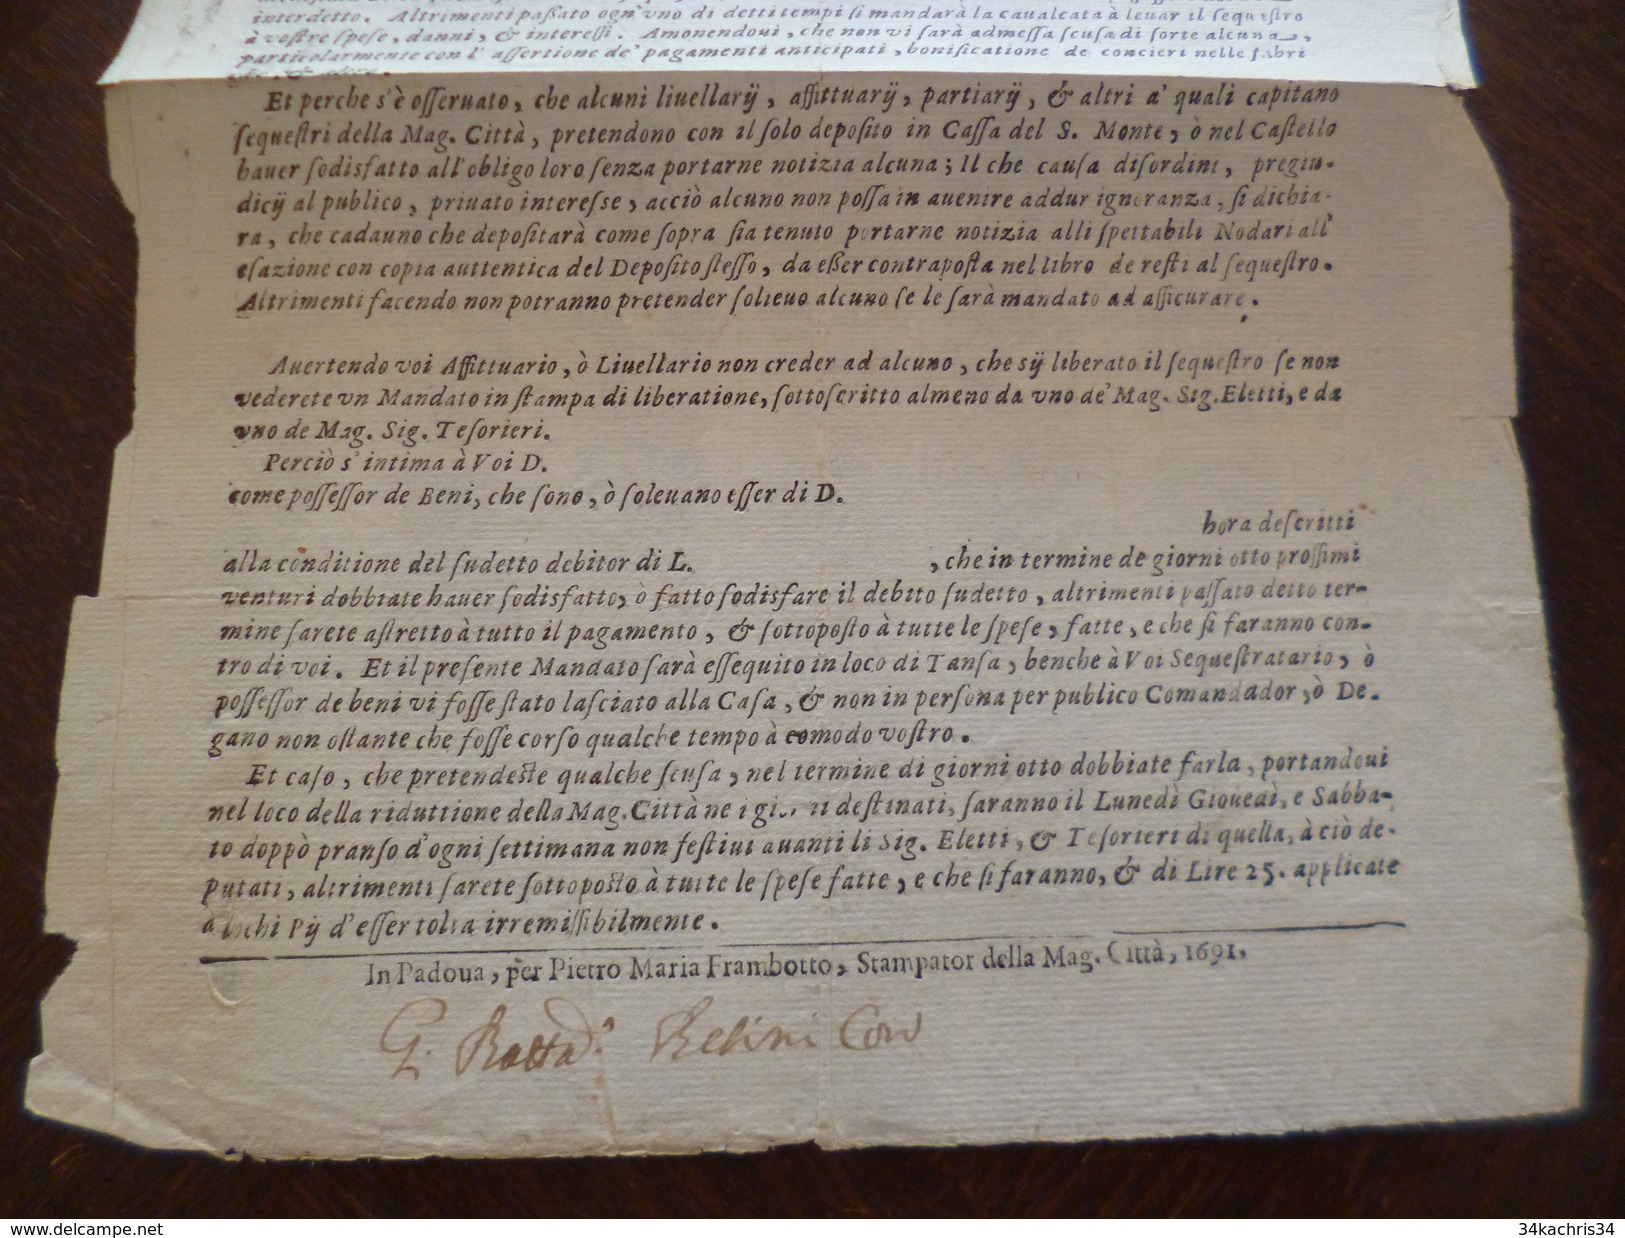 interdetto. Altrimenti paßato ogn'uno di detti tempi si mandarà la caualcata à leuar il sequestro
à vostre spese, danni, & interessi. Amonendoui, che non vi sarà admessa scusa di sorte alcuna,
particolarmente con l'assertione de' pagamenti anticipati, bonificatione de concieri nelle fabri
Et perche s'è osseruato, che alcuni liuellarÿ, affittuarÿ, partiarÿ, & altri a' quali capitano
sequestri della Mag. Città, pretendono con il solo deposito in Cassa del S. Monte, ò nel Castello
hauer sodisfatto all'obligo loro senza portarne notizia alcuna; Il che causa disordini, pregiu-
dicÿ al publico, priuato interesse, acciò alcuno non possa in auenire addur ignoranza, si dichia-
ra, che cadauno che depositarà come sopra sia tenuto portarne notizia alli spettabili Nodari all'
esazione con copia auttentica del Deposito stesso, da eßer contraposta nel libro de resti al sequestro.
Altrimenti facendo non potranno pretender solieuo alcuno se le sarà mandato ad assicurare.
Auertendo voi Affittuario, ò Liuellario non creder ad alcuno, che sÿ liberato il sequestro se non
vederete vn Mandato in stampa di liberatione, sottoscritto almeno da vno de' Mag. Sig. Eletti, e da
vno de Mag. Sig. Tesorieri.
Perciò s'intima à Voi D.
come possessor de Beni, che sono, ò soleuano esser di D.
hora descritti
alla conditione del sudetto debitor di L. , che in termine de giorni otto prossimi
venturi dobbiate hauer sodisfatto, ò fatto sodisfare il debito sudetto, altrimenti passato detto ter-
mine sarete astretto à tutto il pagamento, & sottoposto à tutte le spese, fatte, e che si faranno con-
tro di voi. Et il presente Mandato sarà essequito in loco di Tansa, benche à Voi Sequestratario, ò
possessor de beni vi fosse stato lasciato alla Casa, & non in persona per publico Comandador, ò De-
gano non ostante che fosse corso qualche tempo à comodo vostro.
Et caso, che pretendeste qualche scusa, nel termine di giorni otto dobbiate farla, portandoui
nel loco della riduttione della Mag. Città ne i destinati, saranno il Lunedì Giouedì, e Sabba-
to doppò pranso d'ogni settimana non festiui auanti li Sig. Eletti, & Tesorieri di quella, à ciò de-
putati, altrimenti sarete sottoposto à tutte le spese fatte, e che si faranno, & di Lire 25. applicate
a lochi Pÿ d'esser tolta irremissibilmente.
In Padoua, per Pietro Maria Frambotto, Stampator della Mag. Città, 1691.
www.delcampe.net
34kachris34